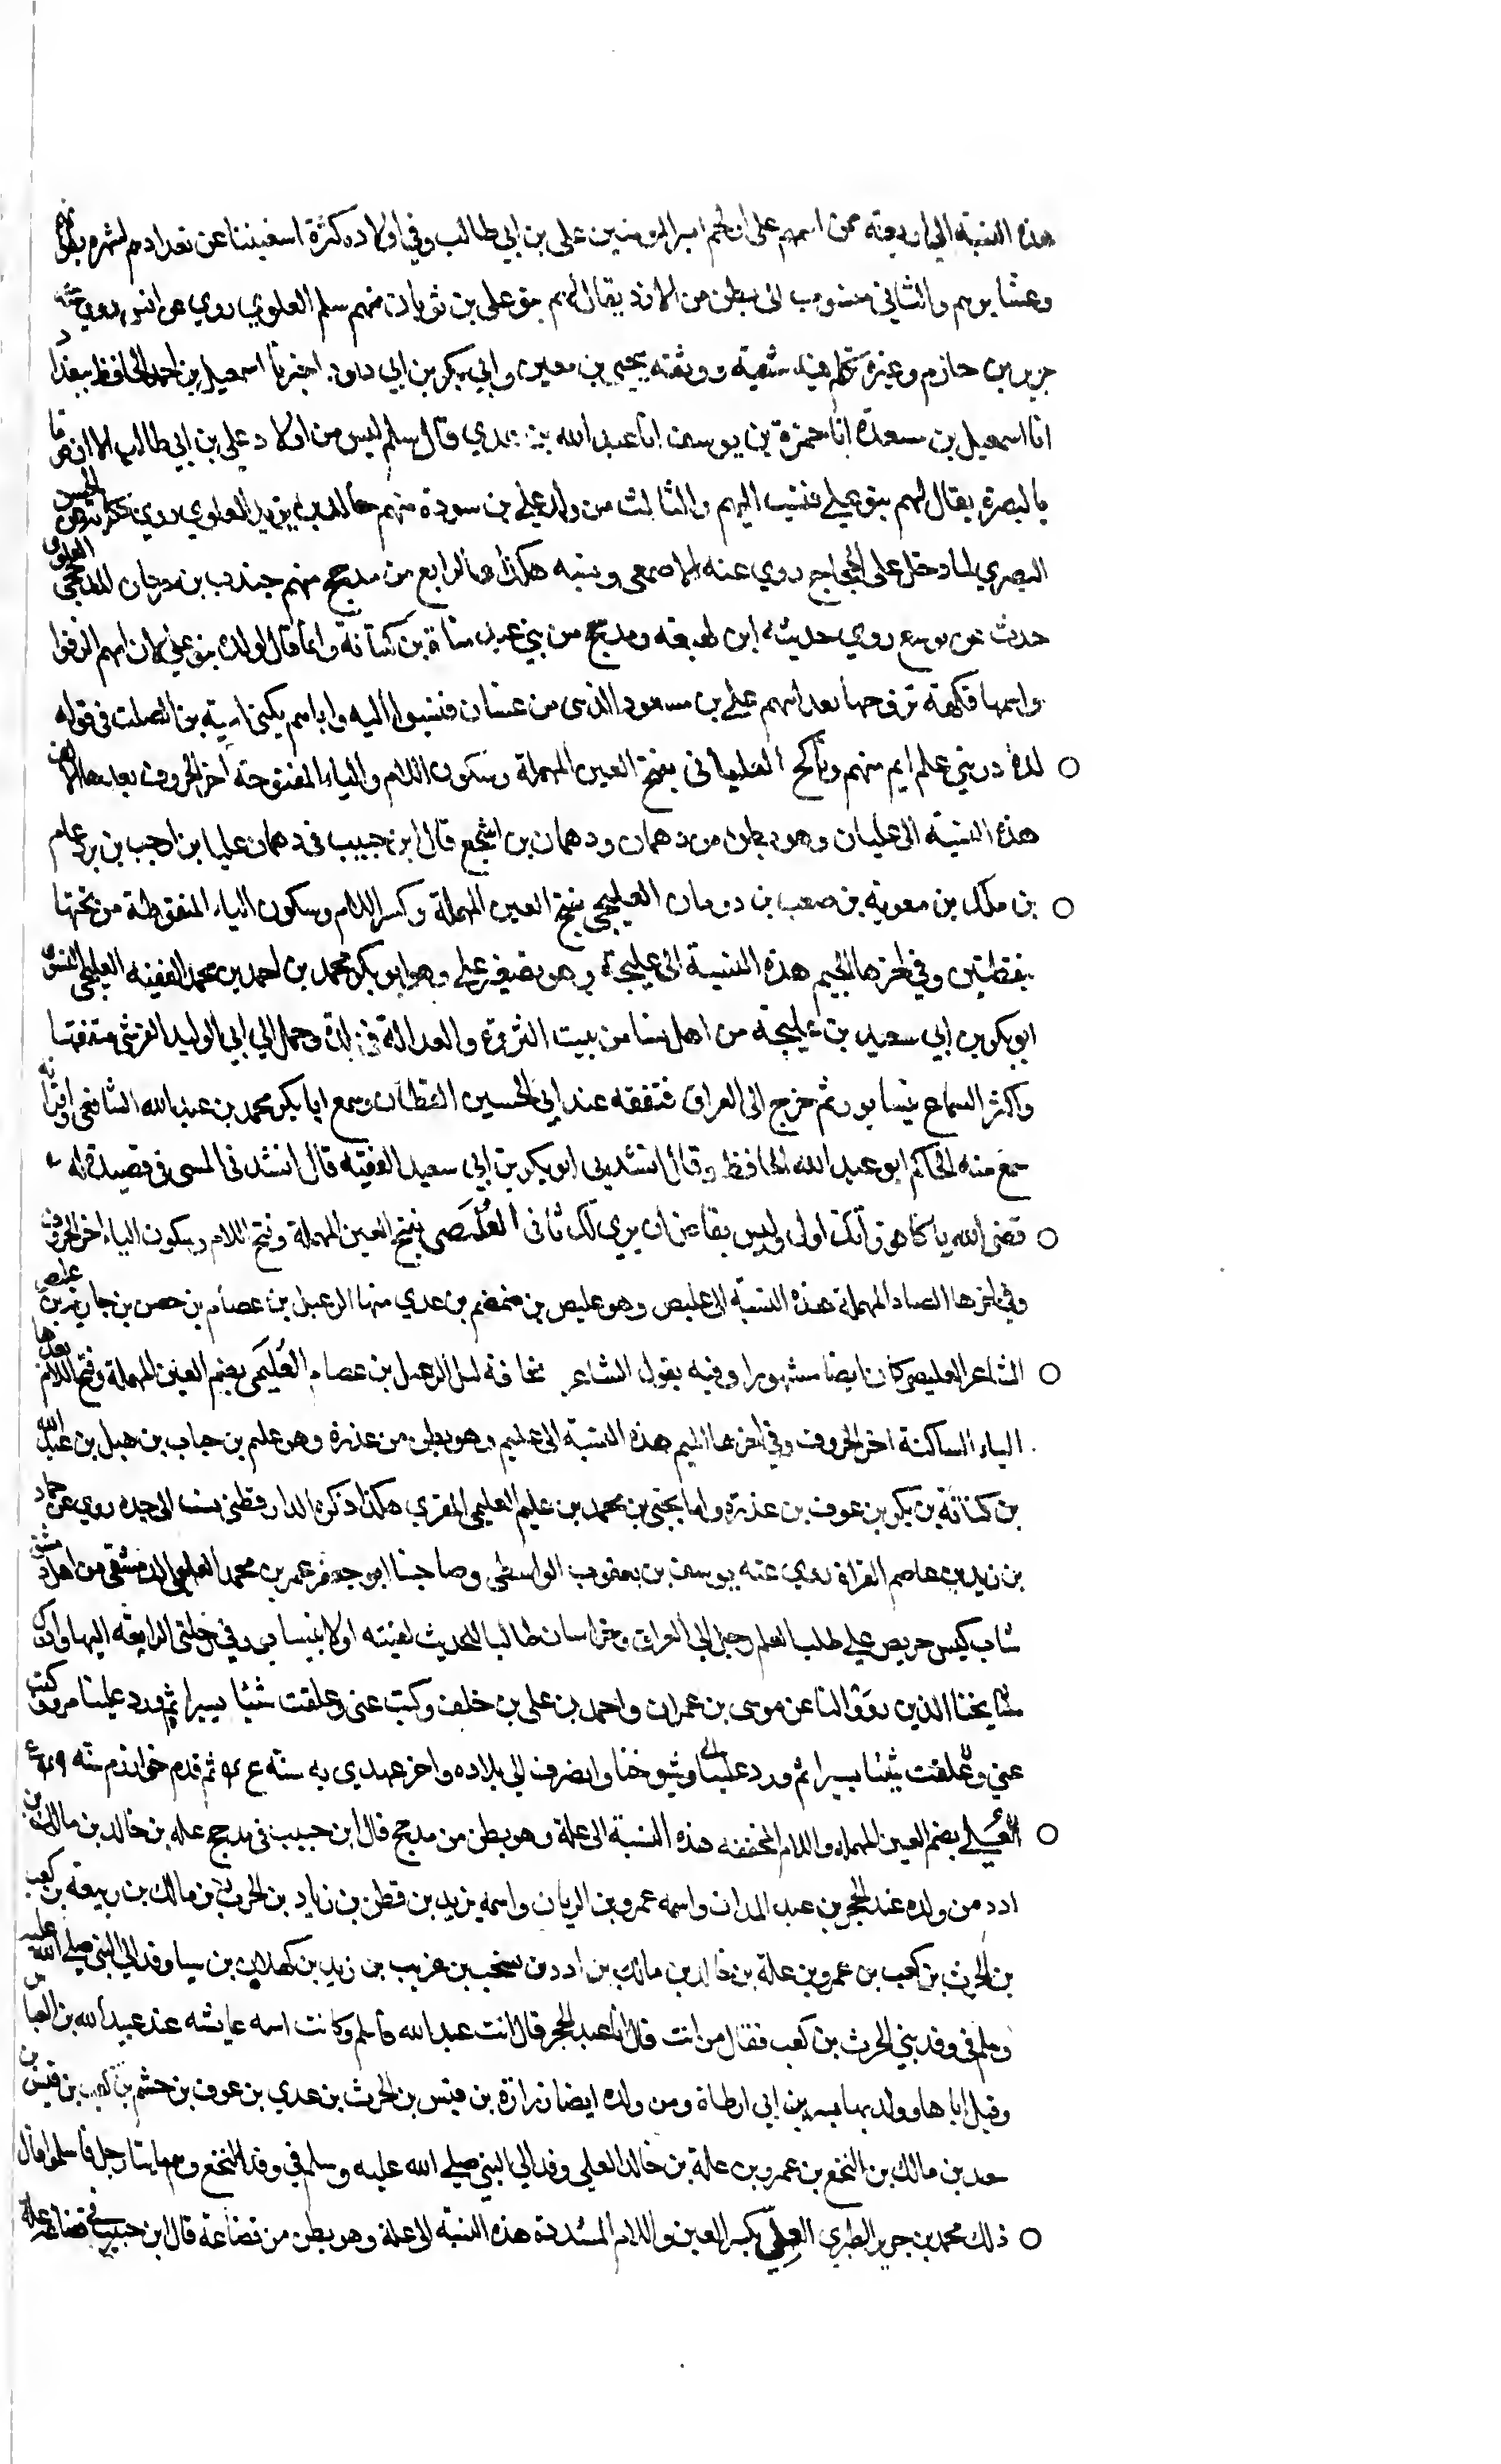 هذه النسبة الى اربعة ممن اسمهم على اولهم امير المومنين على بن ابي طالب وفي اولاده كثرة استغنينا عن تعدادهم لشهرة بطونهم
وعشايرهم والثاني منسوب الى بطن من الازد يقال لهم بنو على بن ثوبان منهم سلم العلوي روي عن انس روي عنه
جرير بن حازم وغيره تكلم فيه شعبة ووثقه يحيى بن معين وابي بكر بن ابي داود اخبرنا اسمعيل بن احمد الحافظ ببغداد
انا اسمعيل بن مسعدة انا حمزة بن يوسف انا عبد الله بن عدي قال سلم ليس من اولاد علي بن ابي طالب الا ان قوما
بالبصرة يقال لهم بنو علي فنسب اليهم والثالث من ولد علي بن سودة منهم خالد بن يزيد العلوي روي حكاية عن الحسن
البصري لما دخل على الحجاج روي عنه الاصمعى ونسبه هكذا والرابع من مدحج منهم جندب بن سرحان المدلجي العلوي
حدث عن روي حديثه ابن لهيعة ومدلج من بني عبد مناة بن كنانة وانما قال لولده بنو علي لان امهم الدفرا
واسمها فكهة تزوجها بعد ابيهم علي بن مسعود الازدى من غسان فنسبوا اليه واياهم يكنى امية بن الصلت في قوله
لله در بني علي ايم منهم وناكح العليانى بفتح العين المهملة وسكون اللام والياء المفتوحة اخر الحروف بعدها الالف
هذه النسبة الى عليان وهو بطن من دهمان ودهمان بن اشجع قال ابن حبيب فى دهمان عليان بن ارحب بن
بن ملك بن معوية بن صعب بن دومان العليجى بفتح العين المهملة وكسر اللام وسكون الياء المنقوطة من تحتها
بنقطتين وفي اخرها الجيم هذه النسبة الى عليجة وهو تصغير علي وهو ابو بكر محمد بن احمد بن محمد الفقيه العليجى النسوى
ابو بكر بن ابي سعيد بن عليجة من اهل نسا من بيت الثروة والعدالة ورحل الي ابي الوليد القرشي متفقها
واكثر السماع بنيسابور ثم خرج الى العراق فتفقه عند ابي الحسين القطان وسمع ابا بكر محمد بن عبد الله الشافعى واقرانه
سمع منه الحاكم ابو عبد الله الحافظ وقال انشدني ابو بكر بن ابي سعيد الفقيه قال انشدنى المسى في قصيدة له
قضى الله اولى وليس العُلَيصى بفتح العين المهملة وفتح اللام وسكون الياء اخر الحروف
وفي اخرها الصاد المهملة هذه النسبة الى عليص وهو عليص بن ضمضم بن عدي منها الرعبل بن عصام بن حصن بن حارثة بن عليص
الشاعر العليصي كان ايضا مشهورا وفيه يقول الشاعر مخافة ليل الرعبل بن عصام العُلَيمى بضم العين المهملة وفتح اللام بعدها
الياء الساكنة اخر الحروف وفي اخرها الميم هذه النسبة الى عليم وهو بطن من عذرة وهو عليم بن جناب بن هبل بن عبد الله
بن كنانة بن بكر بن عوف بن عذرة واما يحيى بن محمد بن عليم العليمي المقري هكذا ذكره الدارقطني نسب الى جده روي عن حماد
بن زيد عاصم القراة روي عنه يوسف بن يعقوب الواسطى وصاحبنا ابو جعفر عمر بن محمد العليمي الدمشقي من اهل دمشق
شاب كيس حريص علي طلب العلم رحل الي العراق وخراسان طالبا للحديث لقيته اولا بنيسابور في رحلتى الرابعة اليها وادرك
مشايخنا الذين رووا لنا عن موسى بن عمران واحمد بن علي بن خلف وكتب عنى وعلقت شيئا يسيرا ثم ورد علينا مرو وكتب
عني وعلقت شيئا يسيرا ثم ورد علينا وشيوخنا وانصرف الي بلاده واخر عهدي به سنة ثم قدم خوارزم سنة
العُلي بضم العين المهملة واللام المخففة هذه النسبة الى علة وهو بطن من مدحج قال ابن حبيب فى مدحج علة بن خالد بن مالك بن
ادد من ولده عبد الحجر بن عبد المدان واسمه عمرو بن الريان واسمه يزيد بن قطن بن زياد بن الحرث بن مالك بن ربيعة بن كعب
بن الحرث بن كعب بن عمرو بن علة بن خالد بن مالك بن ادد بن يشجب بن عريب بن زيد بن كهلان بن سبا وفد الي النبي صلي الله عليه
وسلم في وفد بني الحرث بن كعب فقال من انت قال انا عبد الحجر قال انت عبد الله فاسلم وكانت ابنته عايشه عند عبيد الله بن العباس
وقتل اباها وولديها بسر بن ابي ارطاة ومن ولده ايضا زرارة بن قيس بن الحرث بن عدي بن عوف بن جشم بن كعب بن قيس بن
سعد بن مالك بن النخع بن عمرو بن علة بن خالد العلي وفد الي النبي صلي الله عليه وسلم في وفد النخع وهم مايتا رجل فاسلموا قال
ذلك محمد بن جرير الطبري العِلّي بكسر العين واللام المشددة هذه النسبة الى علة وهو بطن من قضاعة قال ابن حبيب في قضاعة علة